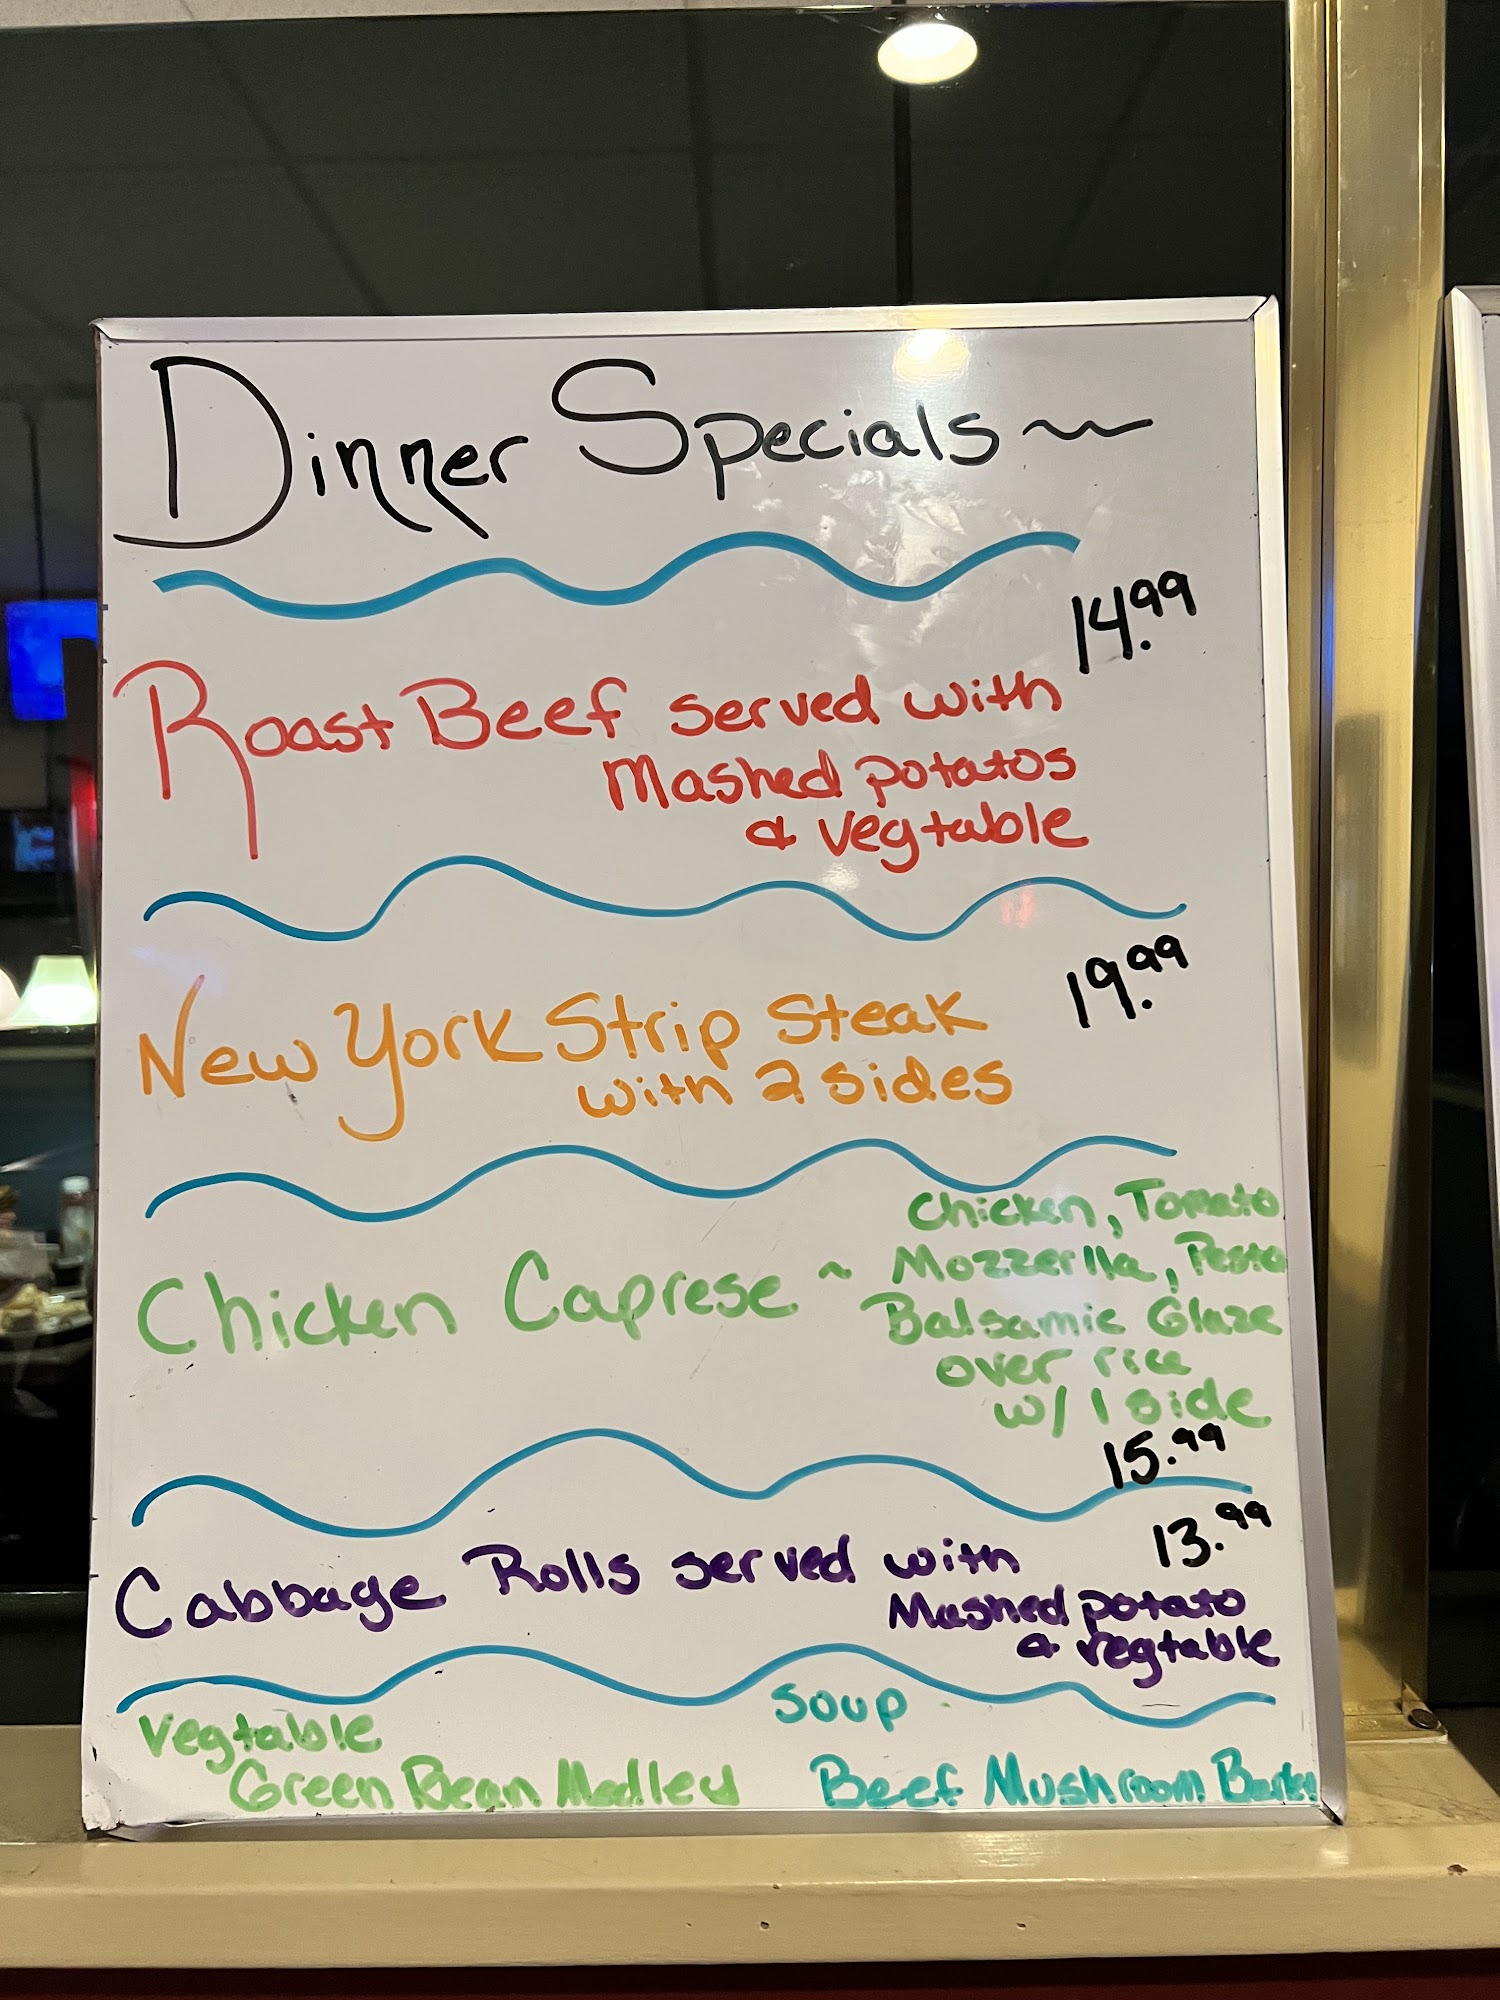 Dinner Specials ~
14.99
Roast Beef served with
Mashed potatos
& vegtable
19.99
New York Strip Steak
with 2 sides
Chicken Caprese ~ Chicken, Tomato
Mozzerlla, Pesto
Balsamic Glaze
over rice
w/ 1 side
15.99
13.99
Cabbage Rolls served with
Mashed potato
& vegtable
Vegtable
Green Bean Medley
Soup
Beef Mushroom